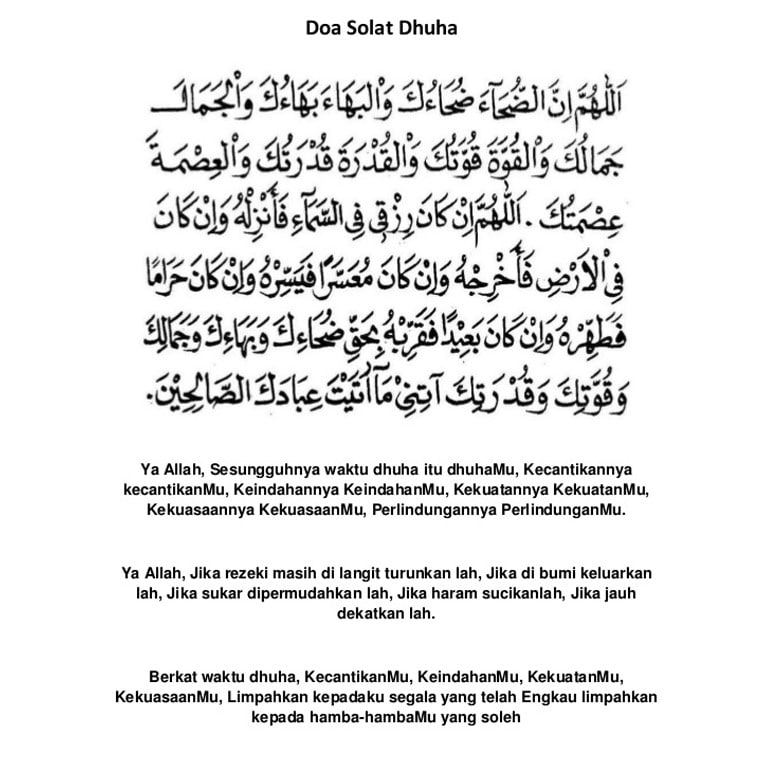 Doa Solat Dhuha
اَللّٰهُمَّ اِنَّ الضُّحَآءَ ضُحَاءُكَ وَالْبَهَاءَ بَهَاءُكَ وَالْجَمَالَ
جَمَالُكَ وَالْقُوَّةَ قُوَّتُكَ وَالْقُدْرَةَ قُدْرَتُكَ وَالْعِصْمَةَ
عِصْمَتُكَ . اَللّٰهُمَّ اِنْ كَانَ رِزْقِى فِى السَّمَآءِ فَأَنْزِلْهُ وَاِنْ كَانَ
فِى اْلاَرْضِ فَأَخْرِجْهُ وَاِنْ كَانَ مُعَسَّرًا فَيَسِّرْهُ وَاِنْ كَانَ حَرَامًا
فَطَهِّرْهُ وَاِنْ كَانَ بَعِيْدًا فَقَرِّبْهُ بِحَقِّ ضُحَاءِكَ وَبَهَاءِكَ وَجَمَالِكَ
وَقُوَّتِكَ وَقُدْرَتِكَ آتِنِيْ مَآاَتَيْتَ عِبَادَكَ الصَّالِحِيْنَ.
Ya Allah, Sesungguhnya waktu dhuha itu dhuhaMu, Kecantikannya
kecantikanMu, Keindahannya KeindahanMu, Kekuatannya KekuatanMu,
Kekuasaannya KekuasaanMu, Perlindungannya PerlindunganMu.
Ya Allah, Jika rezeki masih di langit turunkan lah, Jika di bumi keluarkan
lah, Jika sukar dipermudahkan lah, Jika haram sucikanlah, Jika jauh
dekatkan lah.
Berkat waktu dhuha, KecantikanMu, KeindahanMu, KekuatanMu,
KekuasaanMu, Limpahkan kepadaku segala yang telah Engkau limpahkan
kepada hamba-hambaMu yang soleh